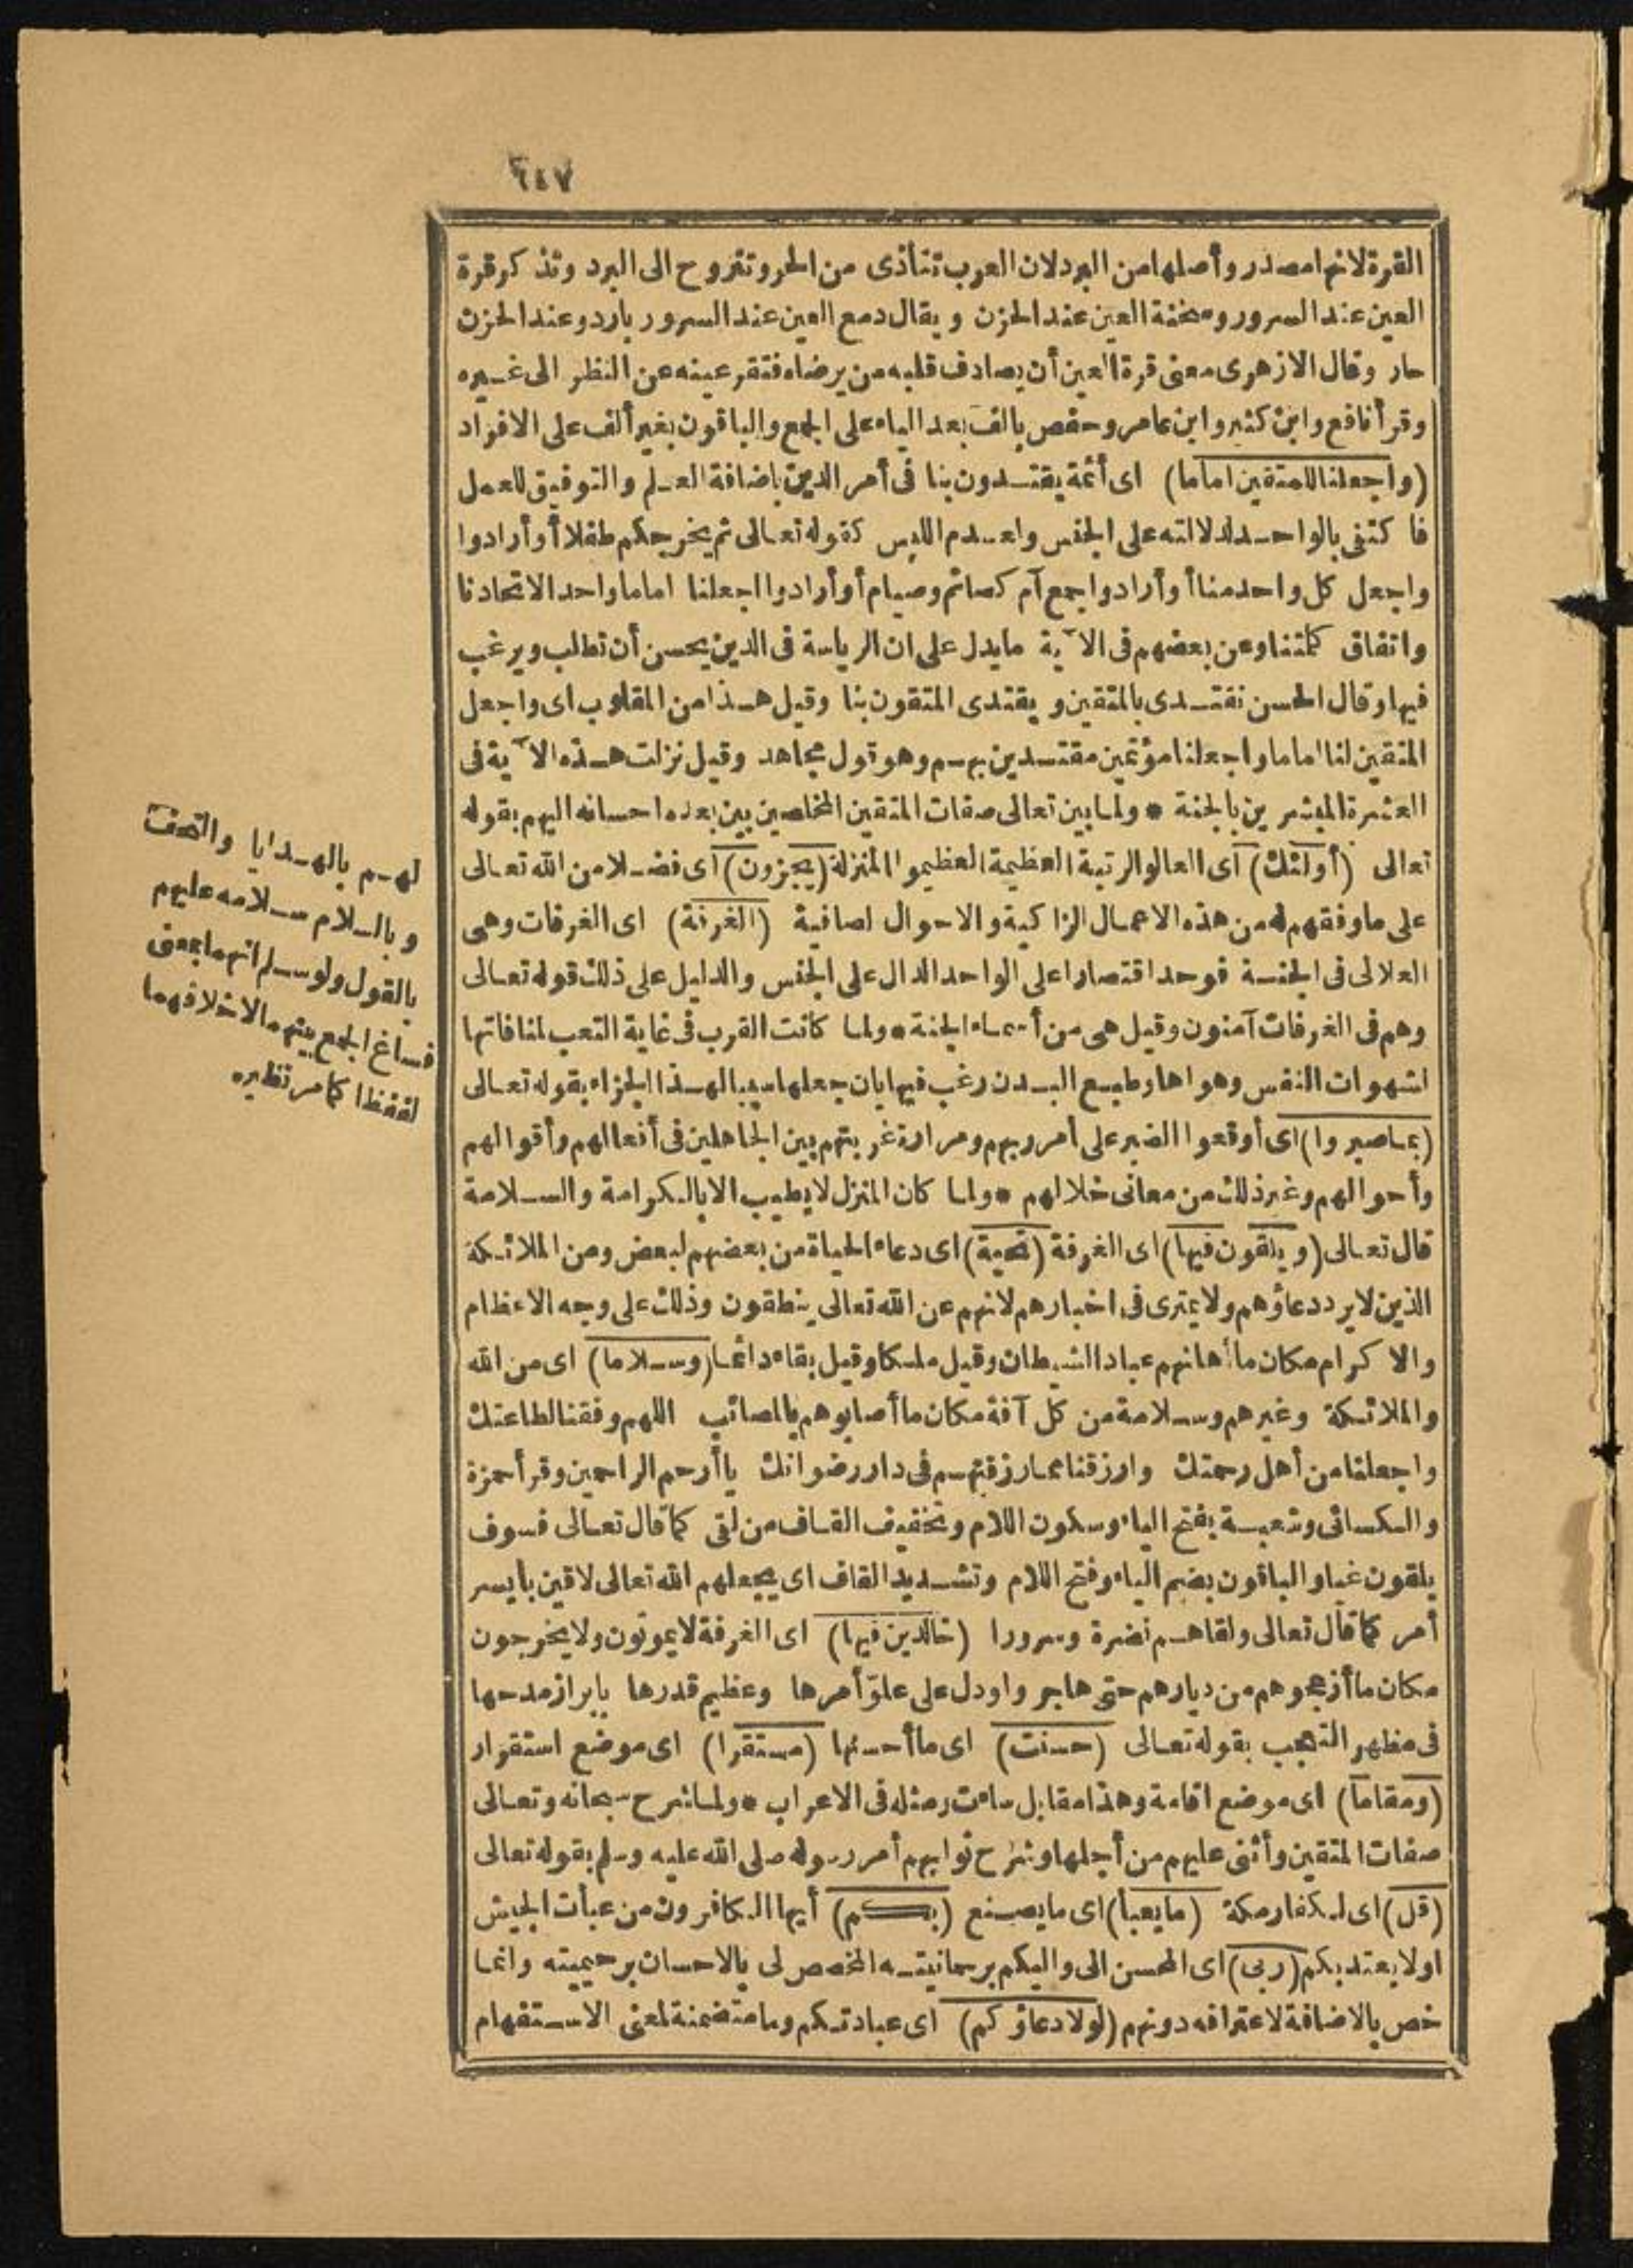 ٦٤٧
القرة لانها مصدر وأصلها من البرد لان العرب تتأذى من الحر وتتروح الى البرد وتذكر قرة
العين عند السرور وسخنة العين عند الحزن ويقال دمع العين عند السرور بارد وعند الحزن
حار وقال الازهرى معنى قرة العين أن يصادف قلبه من يرضاه فتقر عينه عن النظر الى غيره
وقرأ نافع وابن كثير وابن عامر وحفص بالف بعد الياء على الجمع والباقون بغير ألف على الافراد
(واجعلنا للمتقين اماما) اى أئمة يقتدون بنا فى أمر الدين باضافة العلم والتوفيق للعمل
فا كتفى بالواحد لدلالته على الجنس ولعدم اللبس كقوله تعالى ثم يخرجكم طفلا أو أرادوا
واجعل كل واحد منا أو أرادوا جمع آم كصائم وصيام أو أرادوا اجعلنا اماما واحدا لاتحادنا
واتفاق كلمتنا وعن بعضهم فى الآية مايدل على ان الرياسة فى الدين يحسن أن تطلب ويرغب
فيها وقال الحسن نقتدى بالمتقين ويقتدى المتقون بنا وقيل هذا من المقلوب اى واجعل
المتقين لنا اماما واجعلنا مؤتمين مقتدين بهم وهو قول مجاهد وقيل نزلت هذه الآية فى
العشرة المبشرين بالجنة * ولما بين تعالى صفات المتقين المخلصين بين بعده احسانه اليهم بقوله
تعالى (أولئك) اى العالو الرتبة العظيمة العظيمو المنزلة (يجزون) اى فضلا من الله تعالى
على ما وفقهم له من هذه الاعمال الزاكية والاحوال لصافية (الغرفة) اى الغرفات وهى
العلالى فى الجنسة فوحد اقتصارا على الواحد الدال على الجنس والدليل على ذلك قوله تعالى
وهم فى الغرفات آمنون وقيل هى من أسماء الجنة * ولما كانت القرب فى غاية التعب لمنافاتها
لشهوات النفس وهواها وطبع البدن رغب فيها بان جعلها سببا لهذا الجزاء بقوله تعالى
(بما صبروا) اى أوقعوا الصبر على أمر ربهم ومرارة غربتهم بين الجاهلين فى أفعالهم وأقوالهم
وأحوالهم وغير ذلك من معانى خلالهم * ولما كان المنزل لايطيب الا بالكرامة والسلامة
قال تعالى (ويلقون فيها) اى الغرفة (تحية) اى دعاء الحياة من بعضهم لبعض ومن الملائكة
الذين لايرد دعاؤهم ولا يمترى فى اخبارهم لانهم عن الله تعالى ينطقون وذلك على وجه الاعظام
والا كرام مكان ما أهانهم عباد الشيطان وقيل ملكا وقيل بقاء دائما (وسلاما) اى من الله
والملائكة وغيرهم وسلامة من كل آفة مكان ما أصابوهم بالمصائب اللهم وفقنا لطاعتك
واجعلنا من أهل رحمتك وارزقنا مما رزقتهم فى دار رضوانك يا أرحم الراحمين وقرأ حمزة
والكسائى وشعبة بفتح الياء وسكون اللام وتخفيف القاف من لقى كما قال تعالى فسوف
يلقون غيا والباقون بضم الياء وفتح اللام وتشديد القاف اى يجعلهم الله تعالى لاقين بأيسر
أمر كما قال تعالى ولقاهم نضرة وسرورا (خالدين فيها) اى الغرفة لايموتون ولايخرجون
مكان ما أزعجوهم من ديارهم حتى هاجروا ودل على علوّ أمرها وعظيم قدرها بابراز مدحها
فى مظهر التعجب بقوله تعالى (حسنت) اى ما أحسنها (مستقرا) اى موضع استقرار
(ومقاما) اى موضع اقامة وهذا مقابل ساءت ومثله فى الاعراب * ولما شرح سبحانه وتعالى
صفات المتقين وأثنى عليهم من أجلها وشرح ثوابهم أمر رسوله صلى الله عليه وسلم بقوله تعالى
(قل) اى لكفار مكة (مايعبأ) اى مايصنع (بكم) أيها الكافرون من عبأت الجيش
اولا يعتد بكم (ربى) اى المحسن الى واليكم برحمانيته المخصص لى بالاحسان برحيميته وانما
خص بالاضافة لاعترافه دونهم (لولا دعاؤكم) اى عبادتكم وما متضمنة لمعنى الاستفهام
لهم بالهدايا والتحف
وبالسلام سلامه عليهم
بالقول ولو سلم انهما بمعنى
فساغ الجمع بينهما لاختلافهما
لفظا كما مر نظيره